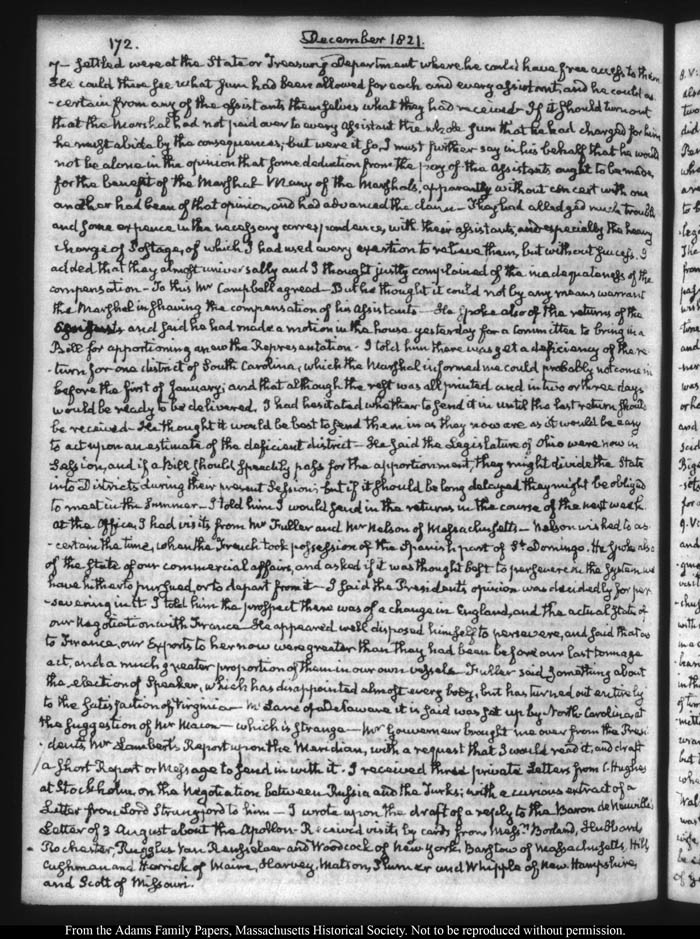 172.
December 1821.
7- settled were at the State or Treasury Department where he could have free access to them
He could there see what sum had been allowed for each and every assistant, and he could as-
-certain from any of the assistants themselves what they had received- If it should turn out
that the Marshal had not paid over to every assistant the whole sum that he had charged for him
he must abide by the consequences; but were it so, I must further say in his behalf that he would
not be alone in the opinion that some deduction from the pay of the assistants ought to be made,
for the benefit of the Marshal- Many of the Marshals, apparently without concert with one
another had been of that opinion, and had advanced the claim- They had alledged much trouble
and some expence in the necessary correspondence, with their assistants, and especially the heavy
charge of Postage, of which I had used every exertion to relieve them, but without success. I
added that they almost universally and I thought justly complained of the inadequateness of the
compensation- To this Mr Campbell agreed- But he thought it could not by any means warrant
the Marshal in shaving the compensation of his assistants- He spoke also of the returns of the
and said he had made a motion in the house yesterday for a Committee to bring in a
Bill for apportioning anew the Representation- I told him there was yet a deficiency of the re-
-turn for one district of South Carolina, which the Marshal informed me could probably not come in
before the first of January; and that although the rest was all printed and in two or three days
would be ready to be delivered, I had hesitated whether to send it in until the last return should
be received- He thought it would be best to send them in as they now are as it would be easy
to act upon an estimate of the deficient district- He said the Legislature of Ohio were now in
Session, and if a Bill should speedily pass for the apportionment, they might divide the State
into Districts during their present Session; but if it should be long delayed they might be obliged
to meet in the Summer- I told him I would send in the returns in the course of the next week.
at the Office, I had visits from Mr Fuller and Mr Nelson of Massachusetts- Nelson wished to as-
-certain the time, when the French took possession of the Spanish part of St Domingo. He spoke also
of the State of our commercial affairs, and asked if it was thought best to persevere in the System we
have hitherto pursued, or to depart from it- I said the President's opinion was decidedly for per-
-severing in it I told him the prospect there was of a change in England, and the actual State of
our Negotiation with France- He appeared well disposed himself to persevere, and said that as
to France, our Exports to her now were greater than they had been before our last tonnage
act, and a much greater proportion of them in our own vessels- Fuller said something about
the election of Speaker, which has disappointed almost every body, but has turned out entirely
to the satisfaction of Virginia- McLane of Delaware it is said was set up by North Carolina, at
the suggestion of Mr Macon- which is strange- Mr Gouverneur brought me over from the Presi-
-dents, Mr Lambert's Report upon the Meridian, with a request that I would read it, and draft
a short Report or Message to send in with it. I received three private Letters from C. Hughes
at Stockholm, on the Negotiation between Russia and the Turks; with a curious extract of a
Letter from Lord Strangford to him- I wrote upon the draft of a reply to the Baron de Neuville's
Letter of 3 August about the Apollon- Received visits by cards from Messrs Borland, Hubbard
Rochester, Ruggles Van Rensselaer and Woodcock of New York, Barstow of Massachusetts, Hill,
Cushman and Herrick of Maine, Harvey, Matson, Plumer and Whipple of New Hampshire,
and Scott of Missouri.
From the Adams Family Papers, Massachusetts Historical Society. Not to be reproduced without permission.